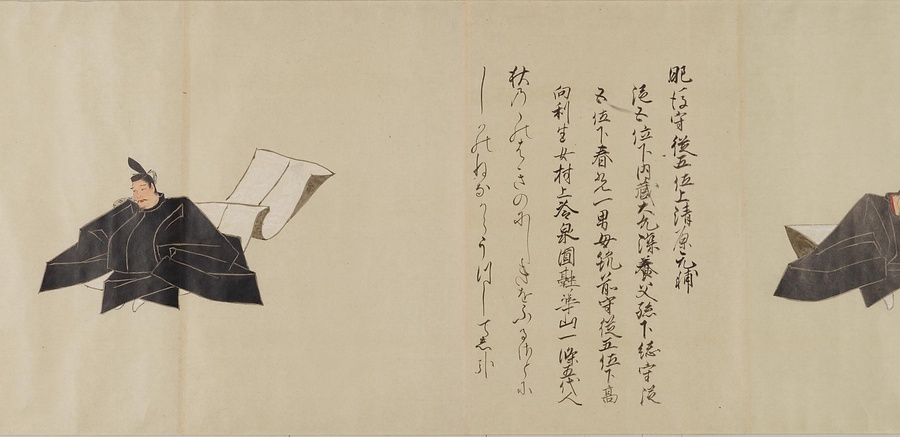 肥後守従五位上清原元輔
従五位下内蔵大允深養父孫下総守従
五位下春光一男母筑前守従五位下高
向利生女村上冷泉圓融華山一條五代人
秋乃のはきのにしきをふるさとに
しかのねなからうつして